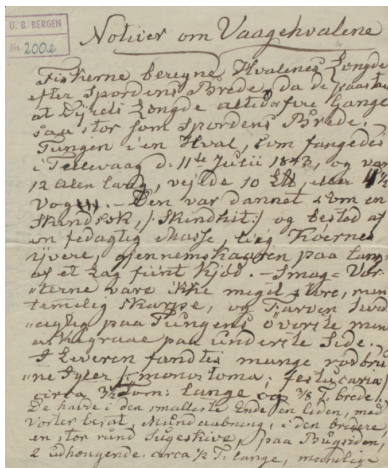 U. B. BERGEN
No. 200e
Noticer om Vaagehvalene
Fiskerne beregne Hvalenes Længde
efter Spordens Brede, da de paastaae
at Dyrets Længde altid er fire Gange
saa stor som Spordens Brede.
Tungen i en Hval, som fangedes
i Tellevaag d. 11te Julii 1843, og var
12 Alen lang, veiede 10
Vog . – Den var dannet som en
og bestod af
en fedagtig Masse liig Koernes
Ijvere, gjennemskaaren paa langs
af et Lag fiint Kjød. – Smags Vor-
terne vare ikke meget store, men
temmelig skarpe, og Farven
paa Tungens överste men
askegraae paa underste Side.
I Leveren fandtes mange rödbru-
ne Igler (monostoma,
circa 3½ Tomme lange og brede.
De havde i den smalleste Ende en liden, med
Vorter besat, Mundaabning, i den bredere
en stor rund Sugeskive, paa Bugsiden,
2 circa ½ T. lange,